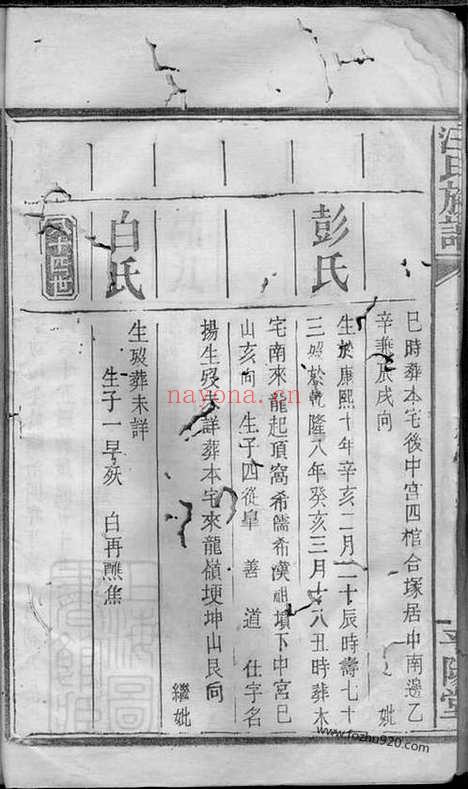 汪氏族譜
平陽堂
巳時葬本宅後中宮四棺合塚居中南邊乙
辛兼辰戌向
妣
彭氏
生於康熙十年辛亥二月二十辰時壽七十
三歿於乾隆八年癸亥三月十八丑時葬本
宅南來龍起頂窩希儒希漢祖墳下中宮巳
山亥向 生子四從皇 善 道 仕字名
揚生歿 詳葬本宅來龍嶺埂坤山艮向
繼妣
白氏
生歿葬未詳
生子一早殀 白再醮焦
十四世
nayona.cn
www.fozhu920.com